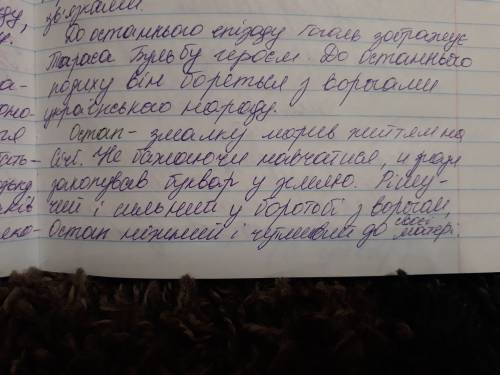 ду, зв'язками.
До останнього епізоду Гоголь зображує
Тараса Бульбу героєм. До останнього
на- подиху він бореться з ворогами
оно- українського народу.
Остап - змалку марив життям на
ать- Січі. Не бажаючи навчатися,
закопував буквар у землю. Рішу-
чий і сильний у боротьбі з ворогом,
Остап ніжний і чутливий до своєї матері.